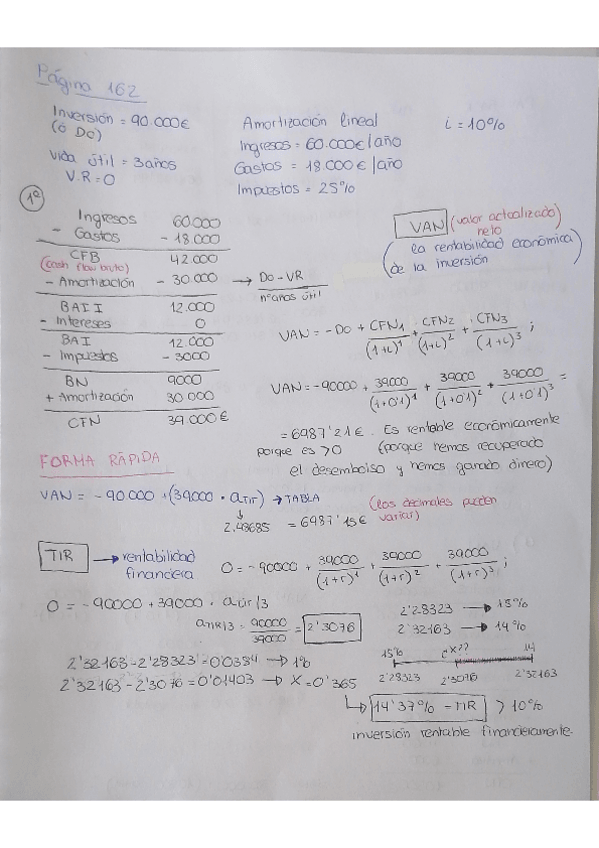 Página 162
Inversión = 90.000€
(ó Do)
Vida útil = 3 años
V.R = 0
Amortización lineal
Ingresos = 60.000€/año
Gastos = 18.000 €/año
Impuestos = 25%
i = 10%
1º
Ingresos 60.000
- Gastos - 18.000
CFB 42.000
(cash flow bruto)
- Amortización - 30.000 → Do - VR / nº años útil
BAII 12.000
- Intereses 0
BAI 12.000
- Impuestos - 3000
BN 9000
+ Amortización 30.000
CFN 39.000€
VAN (valor actualizado neto)
(la rentabilidad económica de la inversión)
VAN = -Do + CFN1/(1+i)^1 + CFN2/(1+i)^2 + CFN3/(1+i)^3 ;
VAN = -90000 + 39000/(1+0'1)^1 + 39000/(1+0'1)^2 + 39000/(1+0'1)^3 =
= 6987'21€. Es rentable económicamente
porque es >0 (porque hemos recuperado
el desembolso y hemos ganado dinero)
FORMA RÁPIDA
VAN = -90.000 + (39000 · aTIR) → TABLA
2.48685 = 6987'15€
(los decimales pueden variar)
TIR → rentabilidad financiera
0 = -90000 + 39000/(1+r)^1 + 39000/(1+r)^2 + 39000/(1+r)^3 ;
0 = -90000 + 39000 · a
= 90000/39000 = 2'3076
2'28323 → 15%
2'32163 → 14%
15% ¿x?? 14
2'28323 2'3076 2'32163
2'32163 - 2'28323 = 0'0384 → 1%
2'32163 - 2'3076 = 0'01403 → X = 0'365
14'37% - TIR > 10%
inversión rentable financieramente.